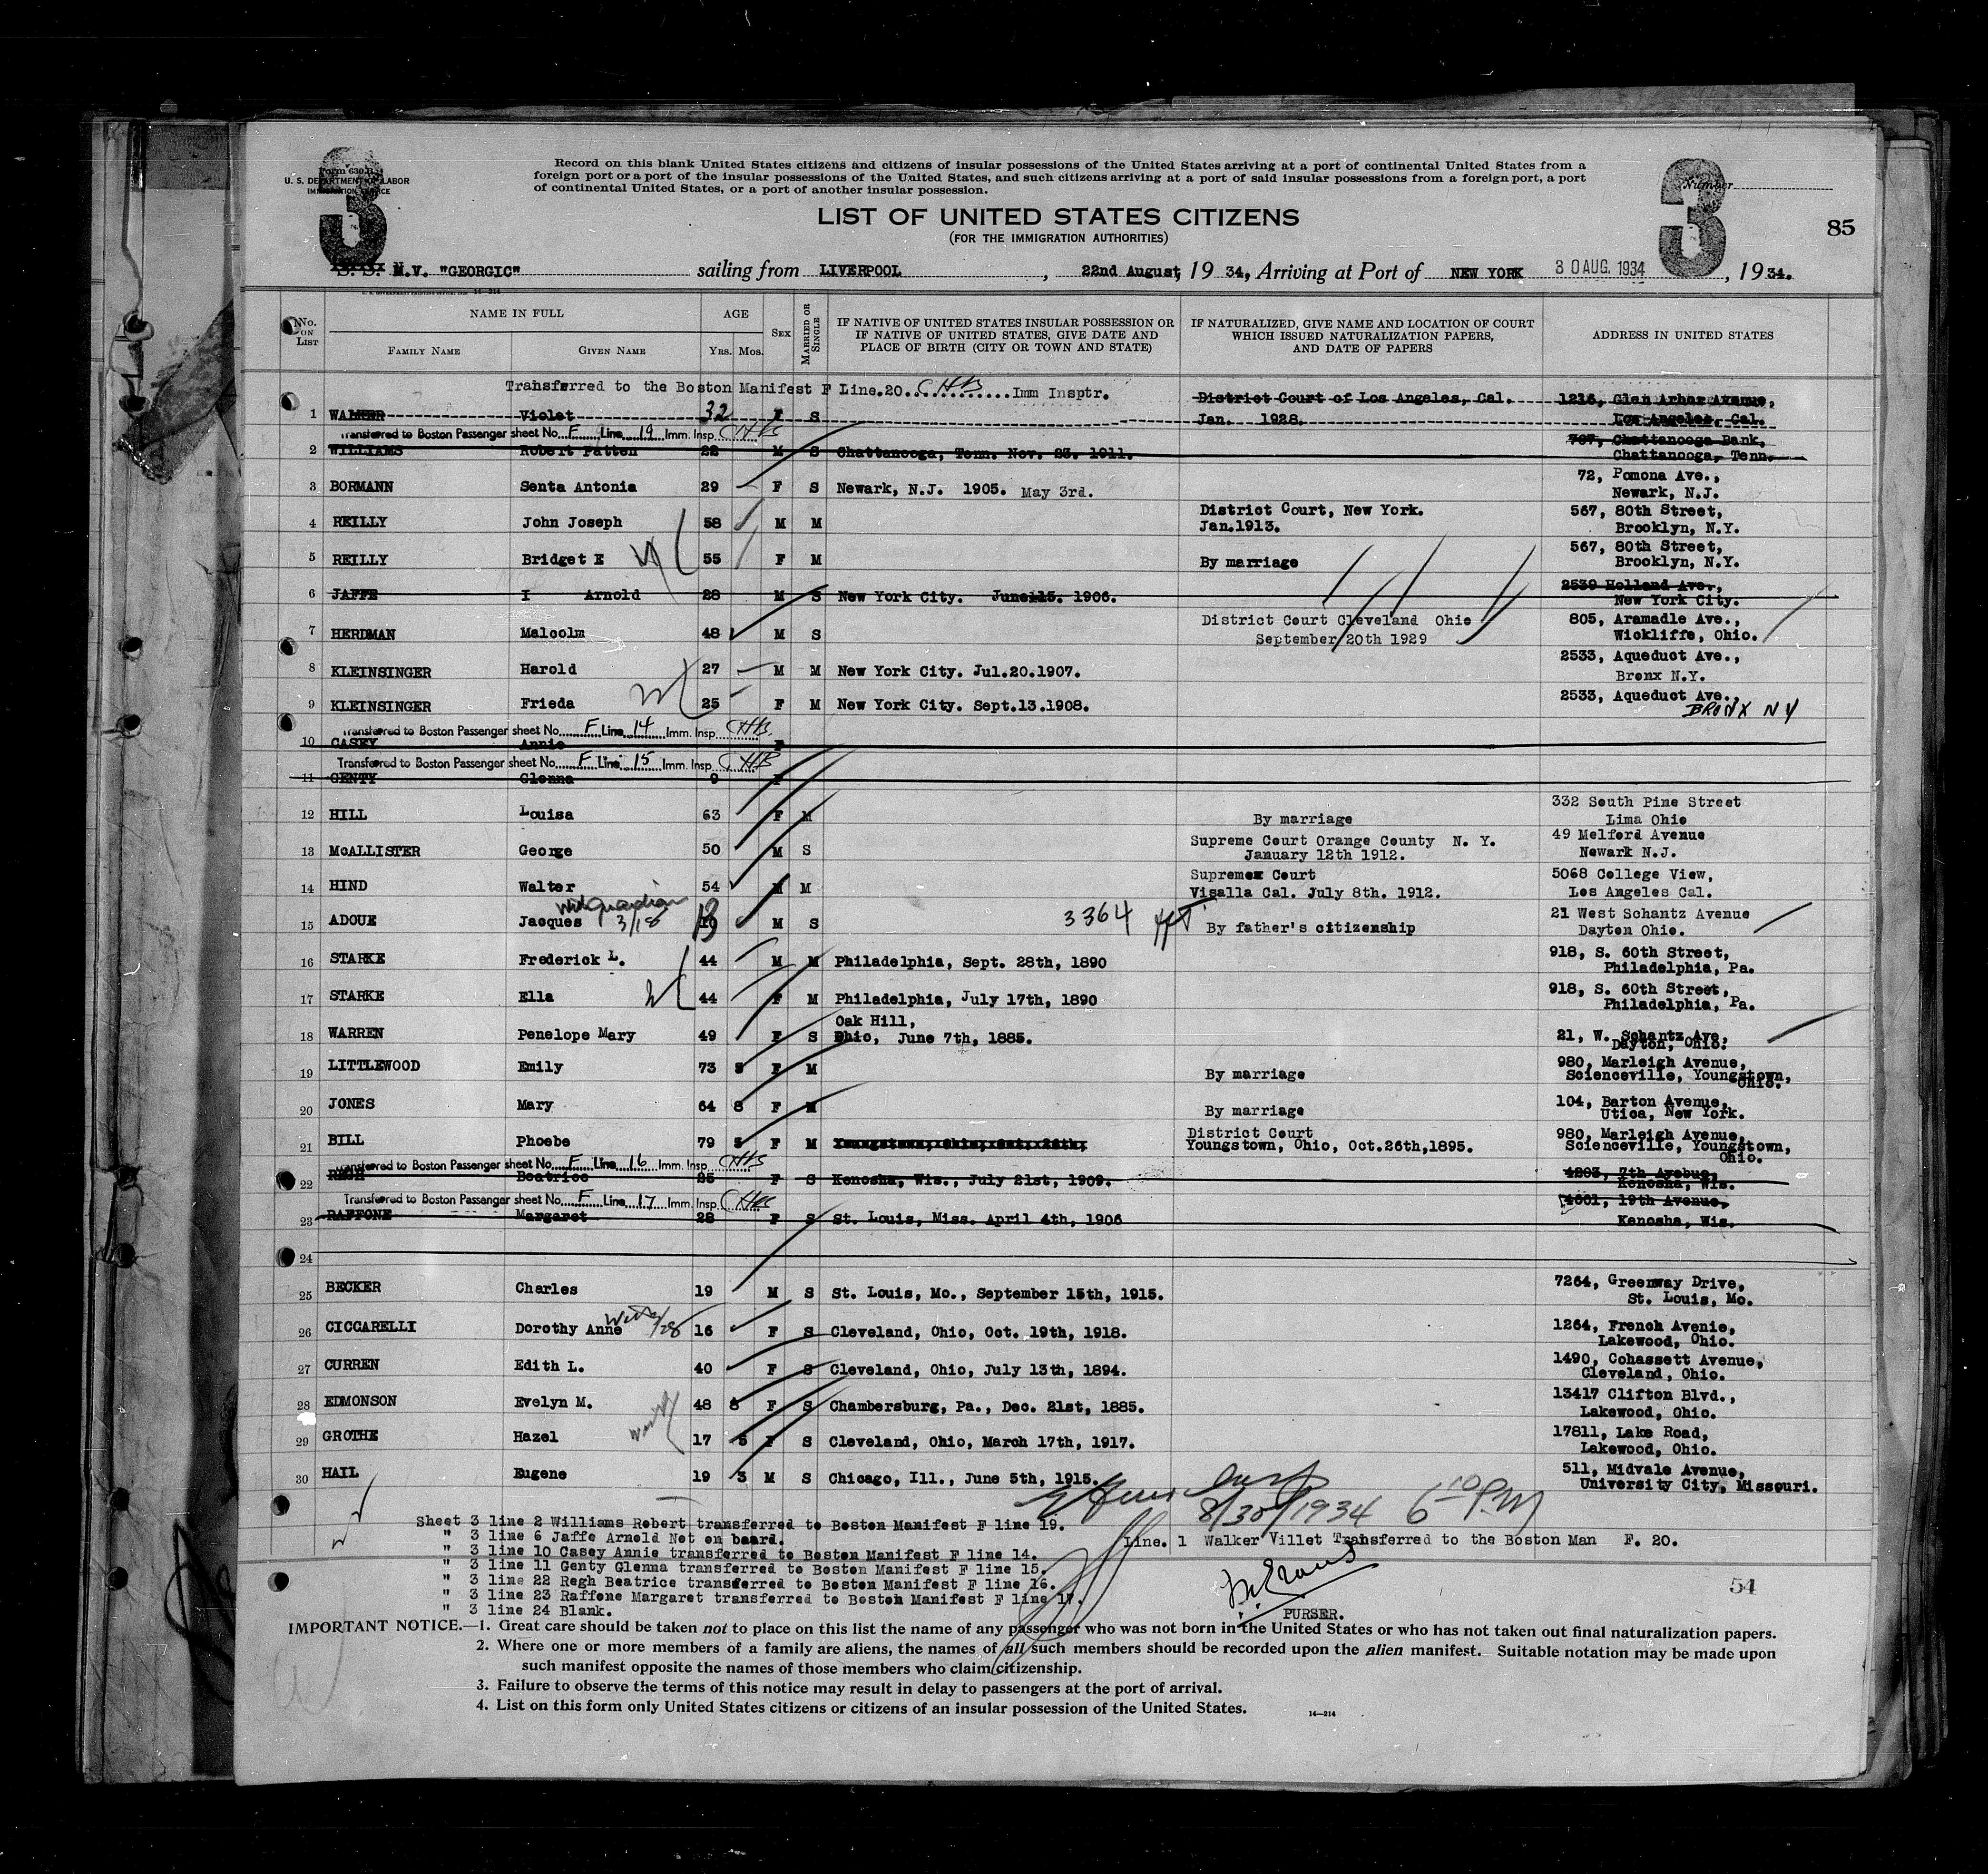 Form 630-B
U. S. DEPARTMENT OF LABOR
IMMIGRATION SERVICE
3
Record on this blank United States citizens and citizens of insular possessions of the United States arriving at a port of continental United States from a
foreign port or a port of the insular possessions of the United States, and such citizens arriving at a port of said insular possessions from a foreign port, a port
of continental United States, or a port of another insular possession.
Number
3
LIST OF UNITED STATES CITIZENS
(FOR THE IMMIGRATION AUTHORITIES)
85
S. S. M.V. "GEORGIC" sailing from LIVERPOOL, 22nd August, 19 34, Arriving at Port of NEW YORK 30 AUG. 1934, 19 34.
No. ON LIST NAME IN FULL FAMILY NAME GIVEN NAME AGE YRS. MOS. SEX MARRIED OR SINGLE IF NATIVE OF UNITED STATES INSULAR POSSESSION OR IF NATIVE OF UNITED STATES, GIVE DATE AND PLACE OF BIRTH (CITY OR TOWN AND STATE) IF NATURALIZED, GIVE NAME AND LOCATION OF COURT WHICH ISSUED NATURALIZATION PAPERS, AND DATE OF PAPERS ADDRESS IN UNITED STATES
Transferred to the Boston Manifest F Line.20. CHB Imm Insptr.
1 WALKER Violet 32 F S District Court of Los Angeles, Cal. Jan. 1928. 1216, Glen Arbor Avenue, Los Angeles, Cal.
Transferred to Boston Passenger sheet No. F Line 19 Imm. Insp. CHB
2 WILLIAMS Robert Patten 22 M S Chattanooga, Tenn. Nov. 23. 1911. 707, Chattanooga Bank, Chattanooga, Tenn.
3 BORMANN Senta Antonia 29 F S Newark, N.J. 1905. May 3rd. 72, Pomona Ave., Newark, N.J.
4 REILLY John Joseph 58 M M District Court, New York. Jan.1913. 567, 80th Street, Brooklyn, N.Y.
5 REILLY Bridget E 55 F M By marriage 567, 80th Street, Brooklyn, N.Y.
6 JAFFE I Arnold 28 M S New York City. June 15. 1906. 2539 Holland Ave., New York City.
7 HERDMAN Malcolm 48 M S District Court Cleveland Ohio September 20th 1929 805, Aramadle Ave., Wickliffe, Ohio.
8 KLEINSINGER Harold 27 M M New York City. Jul.20.1907. 2533, Aqueduct Ave., Bronx N.Y.
9 KLEINSINGER Frieda 25 F M New York City. Sept.13.1908. 2533, Aqueduct Ave., BRONX NY
Transferred to Boston Passenger sheet No. F Line 14 Imm. Insp. CHB
10 CASEY Annie F
Transferred to Boston Passenger sheet No. F Line 15 Imm. Insp. CHB
11 GENTY Glenna 9 F
12 HILL Louisa 63 F M By marriage 332 South Pine Street Lima Ohio
13 McALLISTER George 50 M S Supreme Court Orange County N. Y. January 12th 1912. 49 Melford Avenue Newark N.J.
14 HIND Walter 54 M M Supremex Court Visalla Cal. July 8th. 1912. 5068 College View, Los Angeles Cal.
with guardian 3/18
15 ADOUE Jacques 10 13 M S 3364 By father's citizenship 21 West Schantz Avenue Dayton Ohio.
16 STARKE Frederick L. 44 M M Philadelphia, Sept. 28th, 1890 918, S. 60th Street, Philadelphia, Pa.
17 STARKE Ella 44 F M Philadelphia, July 17th, 1890 918, S. 60th Street, Philadelphia, Pa.
18 WARREN Penelope Mary 49 F S Oak Hill, Ohio, June 7th, 1885. 21, W. Schantz Ave, Dayton, Ohio.
19 LITTLEWOOD Emily 73 F M By marriage 980, Marleigh Avenue, Scienceville, Youngstown, Ohio.
20 JONES Mary 64 8 F M By marriage 104, Barton Avenue, Utica, New York.
21 BILL Phoebe 79 5 F M Youngstown, Ohio, Oct. 26th, District Court Youngstown, Ohio, Oct.26th,1895. 980, Marleigh Avenue, Scienceville, Youngstown, Ohio.
Transferred to Boston Passenger sheet No. F Line 16 Imm. Insp. CHB
22 REGH Beatrice 25 F S Kenosha, Wis., July 21st, 1909. 4203, 7th Avebue, Kenosha, Wis.
Transferred to Boston Passenger sheet No. F Line 17 Imm. Insp. CHB
23 RAFFONE Margaret 28 F S St. Louis, Miss. April 4th, 1906 4601, 19th Avenue, Kenosha, Wis.
24
25 BECKER Charles 19 M S St. Louis, Mo., September 15th, 1915. 7264, Greenway Drive, St. Louis, Mo.
26 CICCARELLI Dorothy Anne 16 F S Cleveland, Ohio, Oct. 19th, 1918. 1264, French Avenie, Lakewood, Ohio.
27 CURREN Edith L. 40 F S Cleveland, Ohio, July 13th, 1894. 1490, Cohassett Avenue, Cleveland, Ohio.
28 EDMONSON Evelyn M. 48 8 F S Chambersburg, Pa., Dec. 21st, 1885. 13417 Clifton Blvd., Lakewood, Ohio.
29 GROTHE Hazel 17 5 F S Cleveland, Ohio, March 17th, 1917. 17811, Lake Road, Lakewood, Ohio.
30 HAIL Eugene 19 3 M S Chicago, Ill., June 5th, 1915. 511, Midvale Avenue, University City, Missouri.
8/30/1934 6 10 P.M
Sheet 3 line 2 Williams Robert transferred to Boston Manifest F line 19.
" 3 line 6 Jaffe Arnold Not on board.
Line. 1 Walker Villet Transferred to the Boston Man F. 20.
" 3 line 10 Casey Annie transferred to Boston Manifest F line 14.
" 3 line 11 Genty Glenna transferred to Boston Manifest F line 15.
" 3 line 22 Regh Beatrice transferred to Boston Manifest F line 16.
" 3 line 23 Raffone Margaret transferred to Boston Manifest F line 17.
" 3 line 24 Blank.
54
PURSER.
IMPORTANT NOTICE.—1. Great care should be taken not to place on this list the name of any passenger who was not born in the United States or who has not taken out final naturalization papers.
2. Where one or more members of a family are aliens, the names of all such members should be recorded upon the alien manifest. Suitable notation may be made upon
such manifest opposite the names of those members who claim citizenship.
3. Failure to observe the terms of this notice may result in delay to passengers at the port of arrival.
4. List on this form only United States citizens or citizens of an insular possession of the United States.
14—214